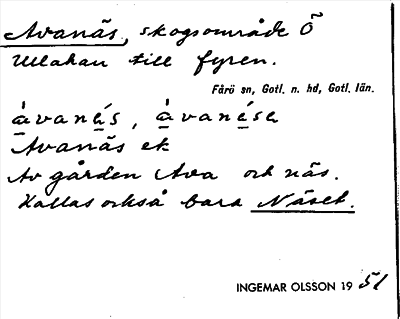 Avanäs, skogsområde Ö
Ullahau till fyren.
Fårö sn, Gotl. n. hd, Gotl. län.
àvanǟs, àvanese
Avanäs ek
Av gården Ava och näs.
Kallas också bara Näset.
INGEMAR OLSSON 1951